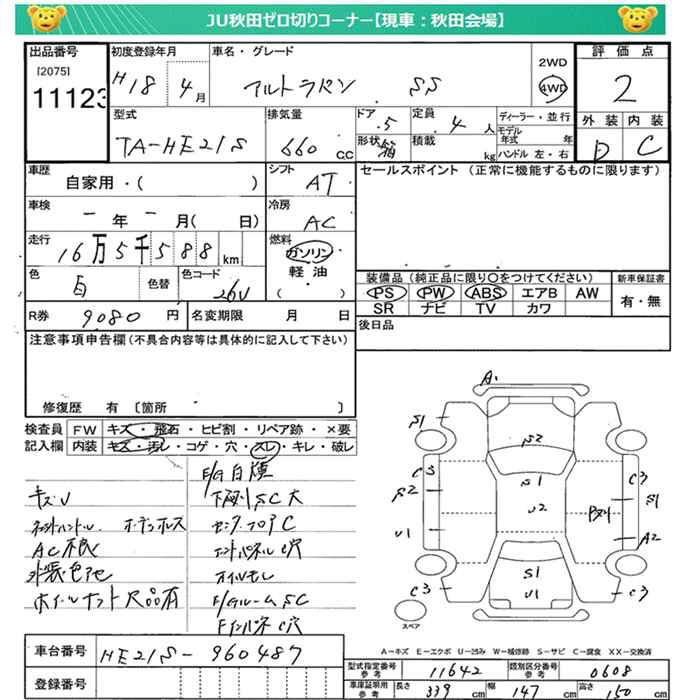 JU秋田ゼロ切りコーナー【現車：秋田会場】
出品番号
[2075]
11123
初度登録年月
H18 4月
車名・グレード
アルトラパン SS
2WD
4WD
評価点
2
外装 内装
D C
型式
TA-HE21S
排気量
660 c.c
ドア
.5
形状
箱
定員
4 人
積載
kg
ディーラー・並行
モデル年式 年
ハンドル 左・右
車歴
自家用・( )
シフト
AT
セールスポイント (正常に機能するものに限ります)
車検
ー年ー月( 日)
冷房
AC
走行
16万5千588km
燃料
ガソリン
軽油
( )
色
白
色替
色コード
26U
装備品 (純正品に限り○をつけてください)
新車保証書
PS PW ABS エアB AW
SR ナビ TV カワ
有・無
R券 9080 円
名変期限 月 日
後日品
注意事項申告欄(不具合内容等は具体的に記入して下さい)
修復歴 有 〔箇所 〕
検査員記入欄
FW キズ・飛石・ヒビ割・リペア跡・×要
内装 キズ・汚レ・コゲ・穴・スレ・キレ・破レ
E/G白煙
キズU
下廻りSC大
AC不良
センターフロアC
外装色アセ
オイルモレ
ホイールナット欠品有
E/GルームSC
A
S1
S2
C3
S2
S1
C3
S1
U2
U1
A2
S1
U1
C3
C3
スペア
A－キズ E－エクボ U－凹み W－補修跡 S－サビ C－腐食 XX－交換済
車台番号
HE21S-960487
登録番号
型式指定番号
参考
11642
類別区分番号
参考
0608
車庫証明用
参考
長さ 339 cm
幅 147 cm
高さ 150 cm